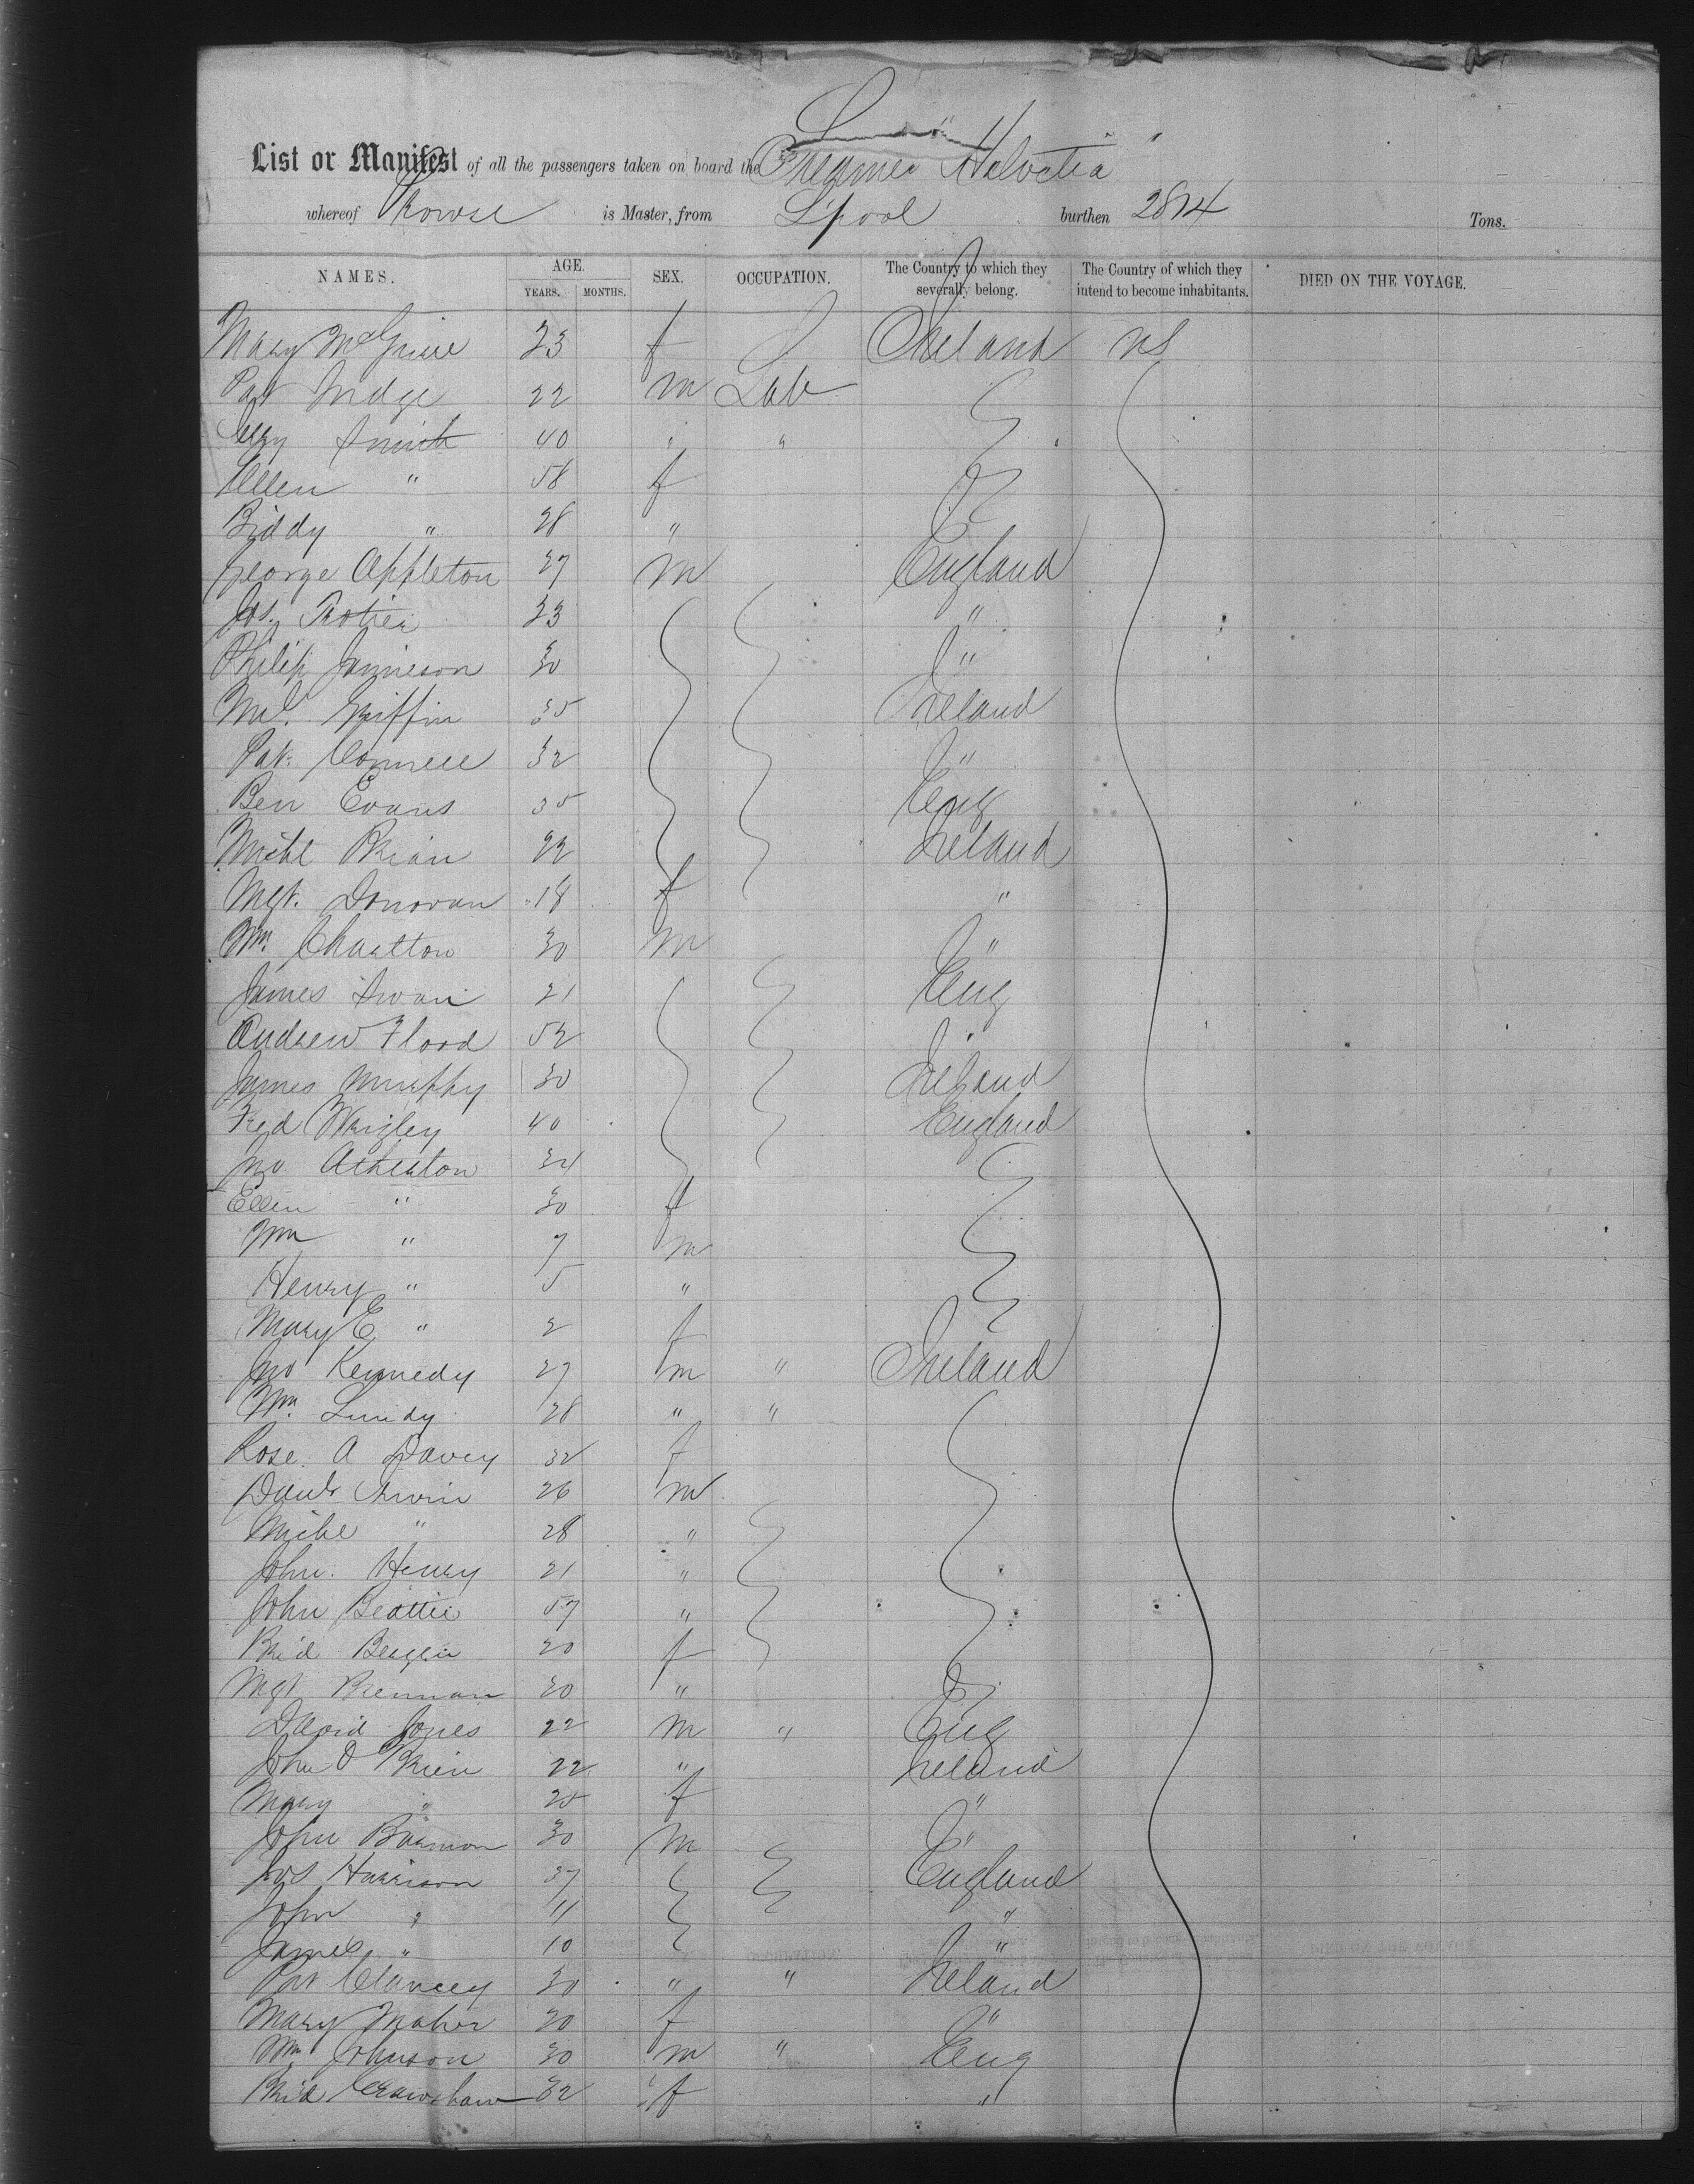 List or Manifest of all the passengers taken on board the Steamer Helvetia
whereof Rowse is Master, from L'pool burthen 2814 Tons.
NAMES. AGE. YEARS. MONTHS. SEX. OCCUPATION. The Country to which they severally belong. The Country of which they intend to become inhabitants. DIED ON THE VOYAGE.
Mary McGuire 23 f Ireland US
Pat Judge 22 m Lab
Smith 40 " "
Ellen " 58 f
Biddy " 28 "
George Appleton 27 m England
Jos. 23 "
Philip Jamieson 30 "
Ml. Griffin 35 Ireland
Pat. Connell 32 "
Ben Evans 35 Eng
Michl Brian 22 Ireland
Mgt. Donovan 18 f "
Wm. Charlton 30 m "
James Swan 21 Eng
Andrew Flood 52 "
James Murphy 30 Ireland
Fred Wrigley 40 England
Jno Atherton 34
Ellen " 30 f
Wm " 7 m
Henry " 5 "
Mary E " 2 f
Jno Kennedy 27 m " Ireland
Wm. Lundy 28 " "
Rose A Davey 32 f
Danl Irwin 26 m
Michl " 28 "
John Henry 21 "
John Beattie 57 "
Brid 20 f
Mgt Brennan 20 "
David Jones 22 m " Eng
John O'Brien 22 " Ireland
Mary " 25 f "
John 30 m "
Jos Harrison 37 England
John " 11 "
James " 10 "
Pat Clancey 30 " " Ireland
Mary Maher 20 f "
Wm Johnson 30 m " Eng
Brid Crawshaw 32 f "